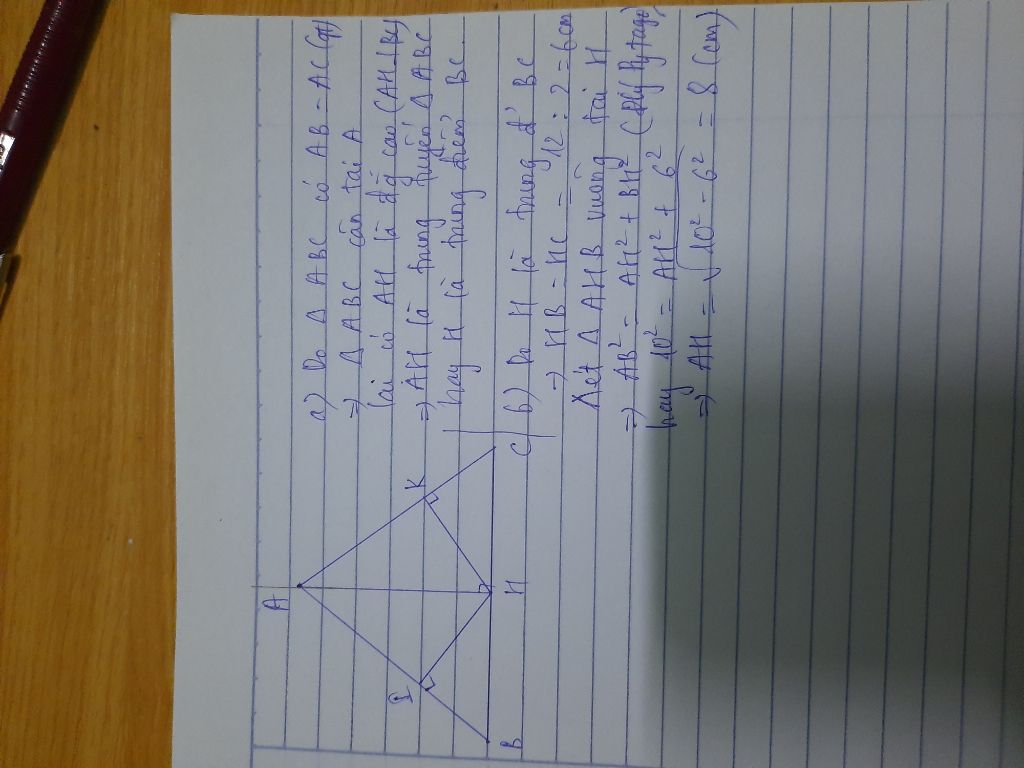 A
I
K
B
H
C
a) Do Δ ABC có AB = AC (gt)
=> Δ ABC cân tại A
lại có AH là đg cao (AH ⊥ BC)
=> AH là trung tuyến Δ ABC
hay H là trung điểm BC
b) Do H là trung đ' BC
=> HB = HC = 12 : 2 = 6cm
Xét Δ AHB vuông tại H
=> AB² = AH² + BH² (Pytago)
hay 10² = AH² + 6²
=> AH = √10² - 6² = 8 (cm)